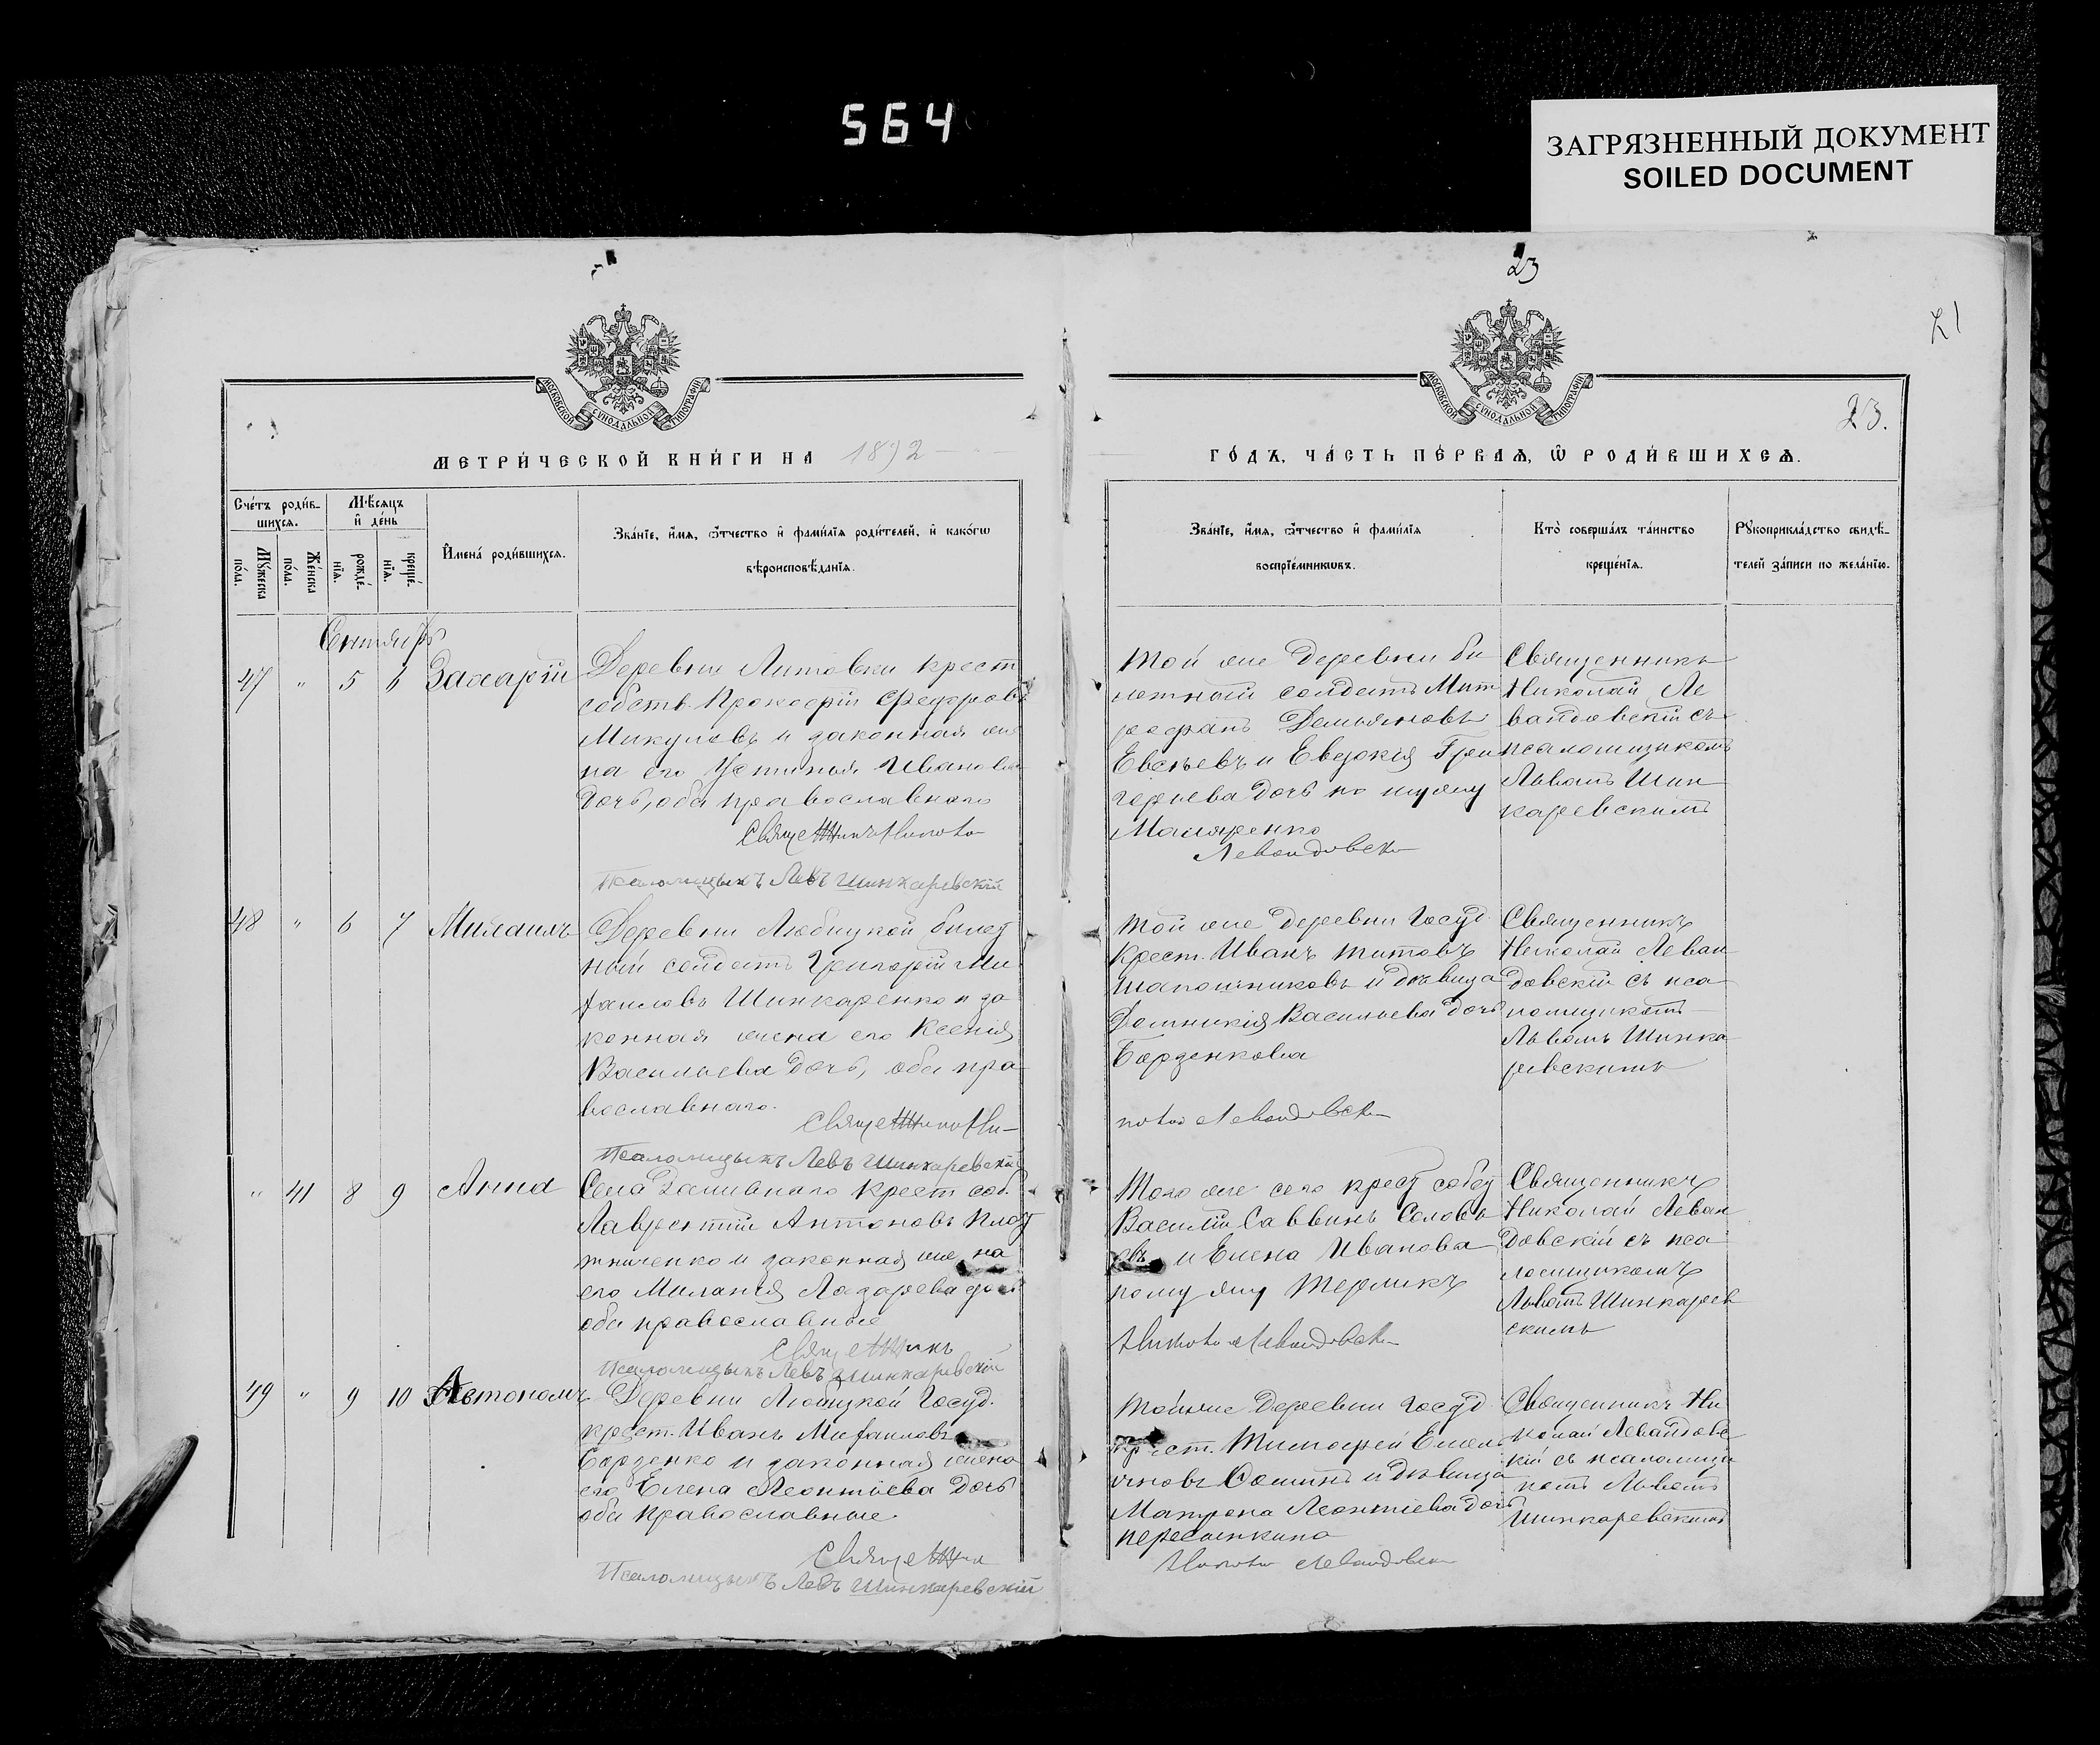 564
ЗАГРЯЗНЕННЫЙ ДОКУМЕНТ
SOILED DOCUMENT
23
21
23.
МОСКОВСКОЙ СУНОДАЛЬНОЙ ТИПОГРАФІИ
МОСКОВСКОЙ СУНОДАЛЬНОЙ ТИПОГРАФІИ
МЕТРИ́ЧЕСКОЙ КНИ́ГИ НА 1892
ГО́ДЪ, ЧА́СТЬ ПЕ́РВАѦ, Ѡ РОДИ́ВШИХСѦ.
Сче́тъ роди́в-
шихсѧ.
Мѣ́сѧцъ
и҆ де́нь
Мꙋ́жеска по́ла.
Же́нска по́ла.
рожде́-
нїѧ.
креще́-
нїѧ.
И҆мена́ роди́вшихсѧ.
Зва́нїе, и҆́мѧ, ѻ҆́тчество и҆ фами́лїѧ роди́телей, и҆ како́гѡ
вѣроисповѣ́данїѧ.
Зва́нїе, и҆́мѧ, ѻ҆́тчество и҆ фами́лїѧ
воспрїе́мникѡвъ.
Кто̀ соверша́лъ та́инство
креще́нїѧ.
Рꙋкоприкла́дство свидѣ́-
телей за́писи по жела́нїю.
Сентябрь
47 " 5 6 Захарій
Деревни Литовки крест
собств. Прокофій Федоровъ
Микуловъ и законная же
на его Устинья Иванова
дочь, оба православнаго
Священникъ Никола
Псаломщикъ Левъ Шинкаревскій
Той же деревни би
летный солдатъ Мит
рофанъ Демьяновъ
Евсѣевъ и Евдокія Гри
горьева дочь по мужу
Маляренко
Левандовскі
Священникъ
Николай Ле
вандовскій съ
псаломщикомъ
Львомъ Шин
каревскимъ
48 " 6 7 Михаилъ
Деревни Любицкой билет
ный солдатъ Григорій Ми
хаиловъ Шинкаренко и за
конная жена его Ксенія
Васильева дочь, оба пра
вославнаго.
Священникъ Ни
Псаломщикъ Левъ Шинкаревскій
Той же деревни Госуд.
крест. Иванъ Титовъ
Шапошниковъ и дѣвица
Домникія Васильева дочь
Борзенкова
колай Левандовскі
Священникъ
Николай Леван
довскій съ пса
ломщикомъ
Львомъ Шинка
ревскимъ
" 41 8 9 Анна
Села Заливнаго крест соб.
Лаврентій Антоновъ Плот
ниченко и законная же на
его Миланія Лазарева дочь
оба православные
Священникъ
Псаломщикъ Левъ Шинкаревскій
Того же села крест собст
Василій Саввинъ Соловь
евъ и Елена Иванова
по мужу Термикъ
Николай Левандовскі
Священникъ
Николай Леван
довскій съ пса
ломщикомъ
Львомъ Шинкарев
скимъ
49 " 9 10 Автономъ
Деревни Любицкой Госуд.
крест. Иванъ Михаиловъ
Борзенко и законная жена
его Елена Леонтіева дочь
оба православные.
Священник
Псаломщикъ Левъ Шинкаревскій
Той же деревни Госуд
крест. Тимофей Емель
яновъ Фоминъ и дѣвица
Матрона Леонтіева дочь
Николай Левандовскі
Священникъ Ни
колай Левандовс
кій съ псаломщи
комъ Львомъ
Шинкаревскимъ